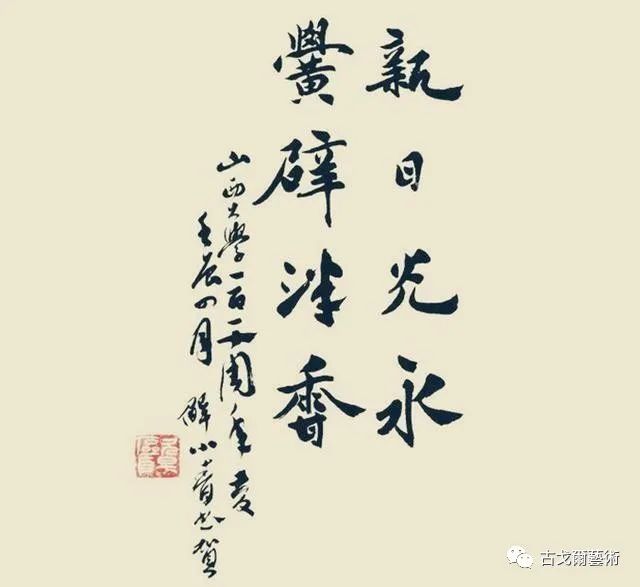 新日光永
黌辟泮香
山西大學一百一十周年慶
壬辰四月 解小青書賀
古戈爾藝術